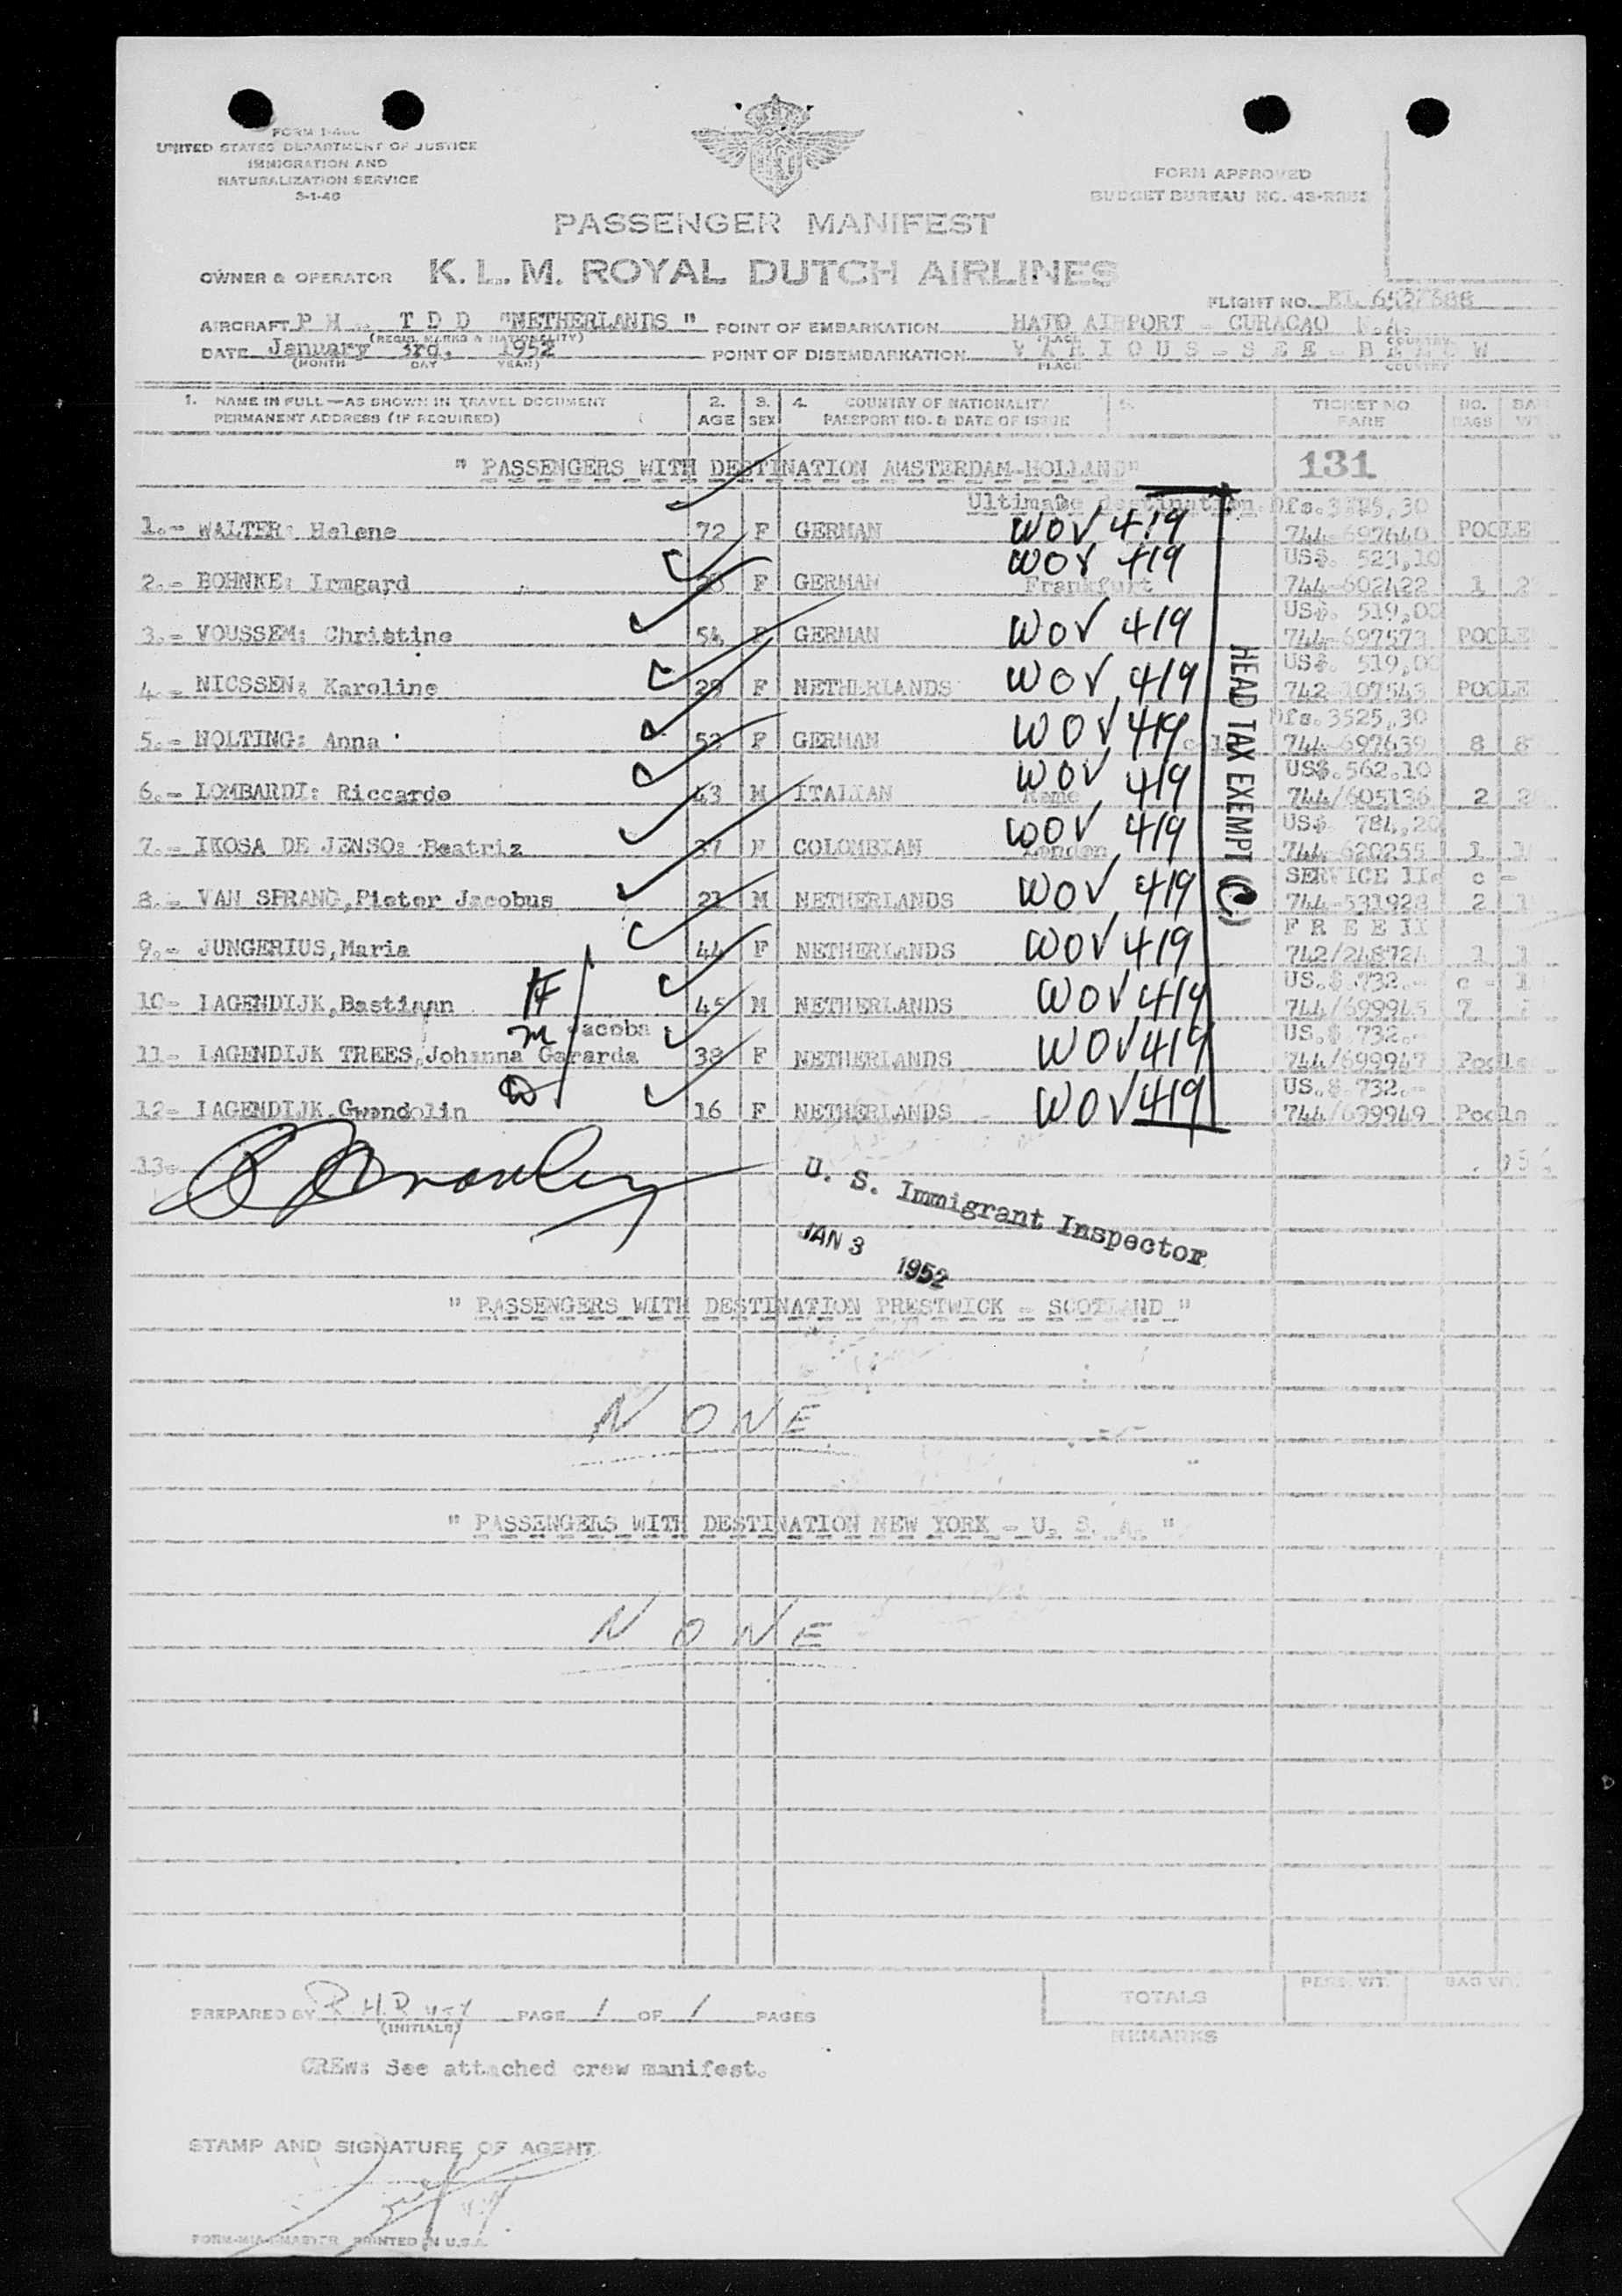 UNITED STATES DEPARTMENT OF JUSTICE
IMMIGRATION AND
NATURALIZATION SERVICE
FORM APPROVED
BUDGET BUREAU NO.
PASSENGER MANIFEST
OWNER & OPERATOR K. L. M. ROYAL DUTCH AIRLINES
FLIGHT NO.
AIRCRAFT P H - T D D "NETHERLANDS" POINT OF EMBARKATION HATO AIRPORT - CURACAO N.A.
(REGIS. MARKS & NATIONALITY) PLACE COUNTRY
DATE January 3rd. 1952 POINT OF DISEMBARKATION V A R I O U S - S E E - B E L O W
(MONTH DAY YEAR) PLACE COUNTRY
1. NAME IN FULL—AS SHOWN IN TRAVEL DOCUMENT 2. 3. 4. COUNTRY OF NATIONALITY 5. TICKET NO. NO.
PERMANENT ADDRESS (IF REQUIRED) AGE SEX PASSPORT NO. & DATE OF ISSUE FARE BAGS
" PASSENGERS WITH DESTINATION AMSTERDAM-HOLLAND" 131
Ultimate destination
1.- WALTER: Helene 72 F GERMAN WOV 419 744-697640 POOLE
US$. 523,10
2.- BOHNKE: Irmgard F GERMAN Frankfurt WOV 419 744-602422 1
US$. 519,00
3.- VOUSSEM: Christine 54 F GERMAN WOV 419 744-697573 POOLE
US$. 519,00
4.- NICSSEN: Karoline 29 F NETHERLANDS WOV 419 742-107543 POOLE
Dfs.3525,30
5.- NOLTING: Anna F GERMAN WOV 419 744-697639 8 8
US$.562.10
6.- LOMBARDI: Riccardo 43 M ITALIAN Rome WOV 419 744/605136 2
US$. 784,20
7.- IKOSA DE JENSO: Beatriz 37 F COLOMBIAN London WOV 419 744-620255 1
SERVICE II
8.- VAN SPRANG,Pieter Jacobus 21 M NETHERLANDS WOV 419 744-531928 2
F R E E II
9.- JUNGERIUS,Maria 44 F NETHERLANDS WOV 419 742/248724 1
US.$.732.-
10- LAGENDIJK,Bastiaan H F 45 M NETHERLANDS WOV 419 744/699945 7
Jacoba US.$.732.-
11- LAGENDIJK TREES,Johanna Gerarda M 38 F NETHERLANDS WOV 419 744/699947 Poole
US.$.732.-
12- LAGENDIJK.Gwendolin D 16 F NETHERLANDS WOV 419 744/699949 Poole
HEAD TAX EXEMPT (C)
13-
U. S. Immigrant Inspector
JAN 3 1952
" PASSENGERS WITH DESTINATION PRESTWICK - SCOTLAND "
N O N E
" PASSENGERS WITH DESTINATION NEW YORK - U. S. A. "
N O N E
PREPARED BY PAGE 1 OF 1 PAGES
(INITIALS)
TOTALS PERS. WT. BAG WT.
REMARKS
CREW: See attached crew manifest.
STAMP AND SIGNATURE OF AGENT
PRINTED IN U.S.A.